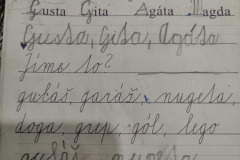 Gusta Gita Agáta Magda
Gusta, Gita, Agáta
Jíme to?
guláš, garáž, nugeta,
doga, grep, gól, lego
guláš